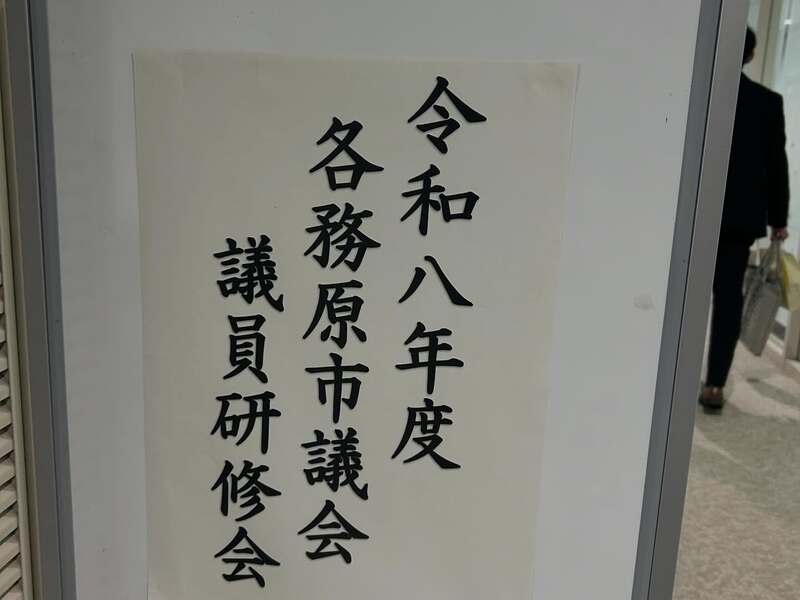 令和八年度
各務原市議会
議員研修会